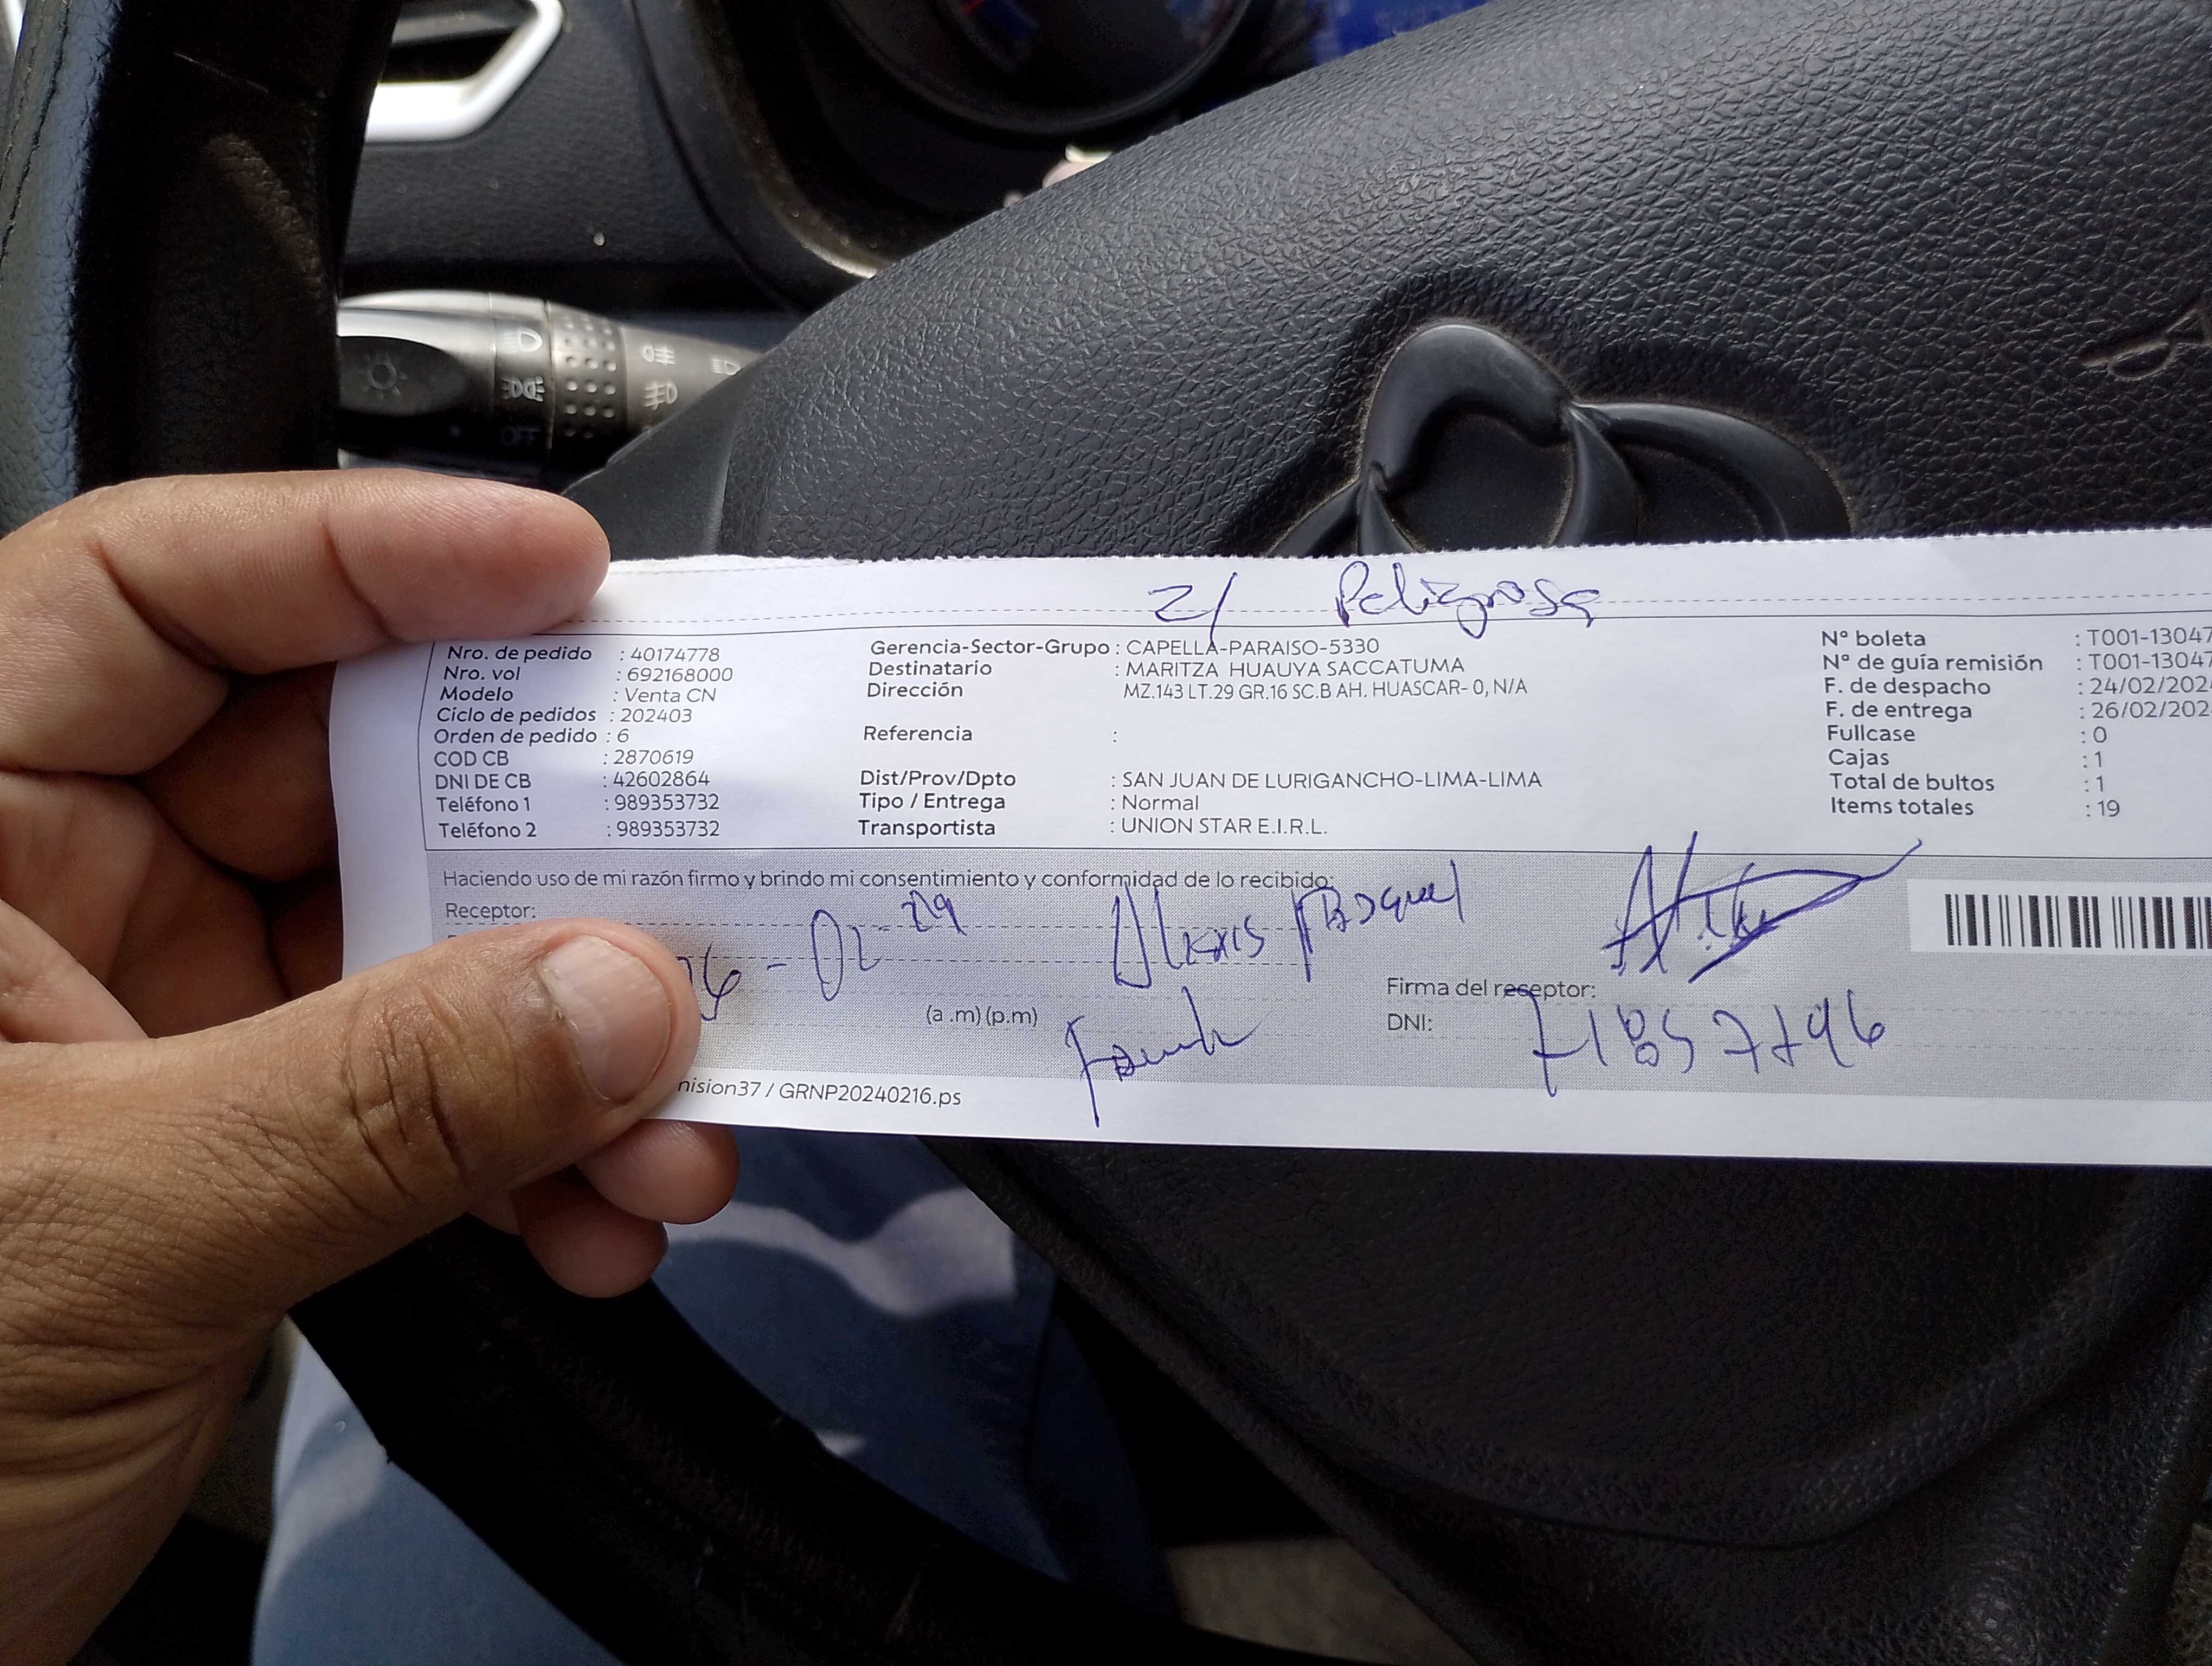 Z/ Peligrosa
Nro. de pedido : 40174778
Nro. vol : 692168000
Modelo : Venta CN
Ciclo de pedidos : 202403
Orden de pedido : 6
COD CB : 2870619
DNI DE CB : 42602864
Teléfono 1 : 989353732
Teléfono 2 : 989353732
Gerencia-Sector-Grupo : CAPELLA-PARAISO-5330
Destinatario : MARITZA HUAUYA SACCATUMA
Dirección MZ.143 LT.29 GR.16 SC.B AH. HUASCAR- 0, N/A
Referencia :
Dist/Prov/Dpto : SAN JUAN DE LURIGANCHO-LIMA-LIMA
Tipo / Entrega : Normal
Transportista : UNION STAR E.I.R.L.
N° boleta : T001-13047
N° de guía remisión : T001-13047
F. de despacho : 24/02/202
F. de entrega : 26/02/202
Fullcase : 0
Cajas : 1
Total de bultos : 1
Items totales : 19
Haciendo uso de mi razón firmo y brindo mi consentimiento y conformidad de lo recibido:
Receptor:
Alexis
(a .m) (p.m)
Firma del receptor:
DNI: 71857796
nision37 / GRNP20240216.ps
OFF